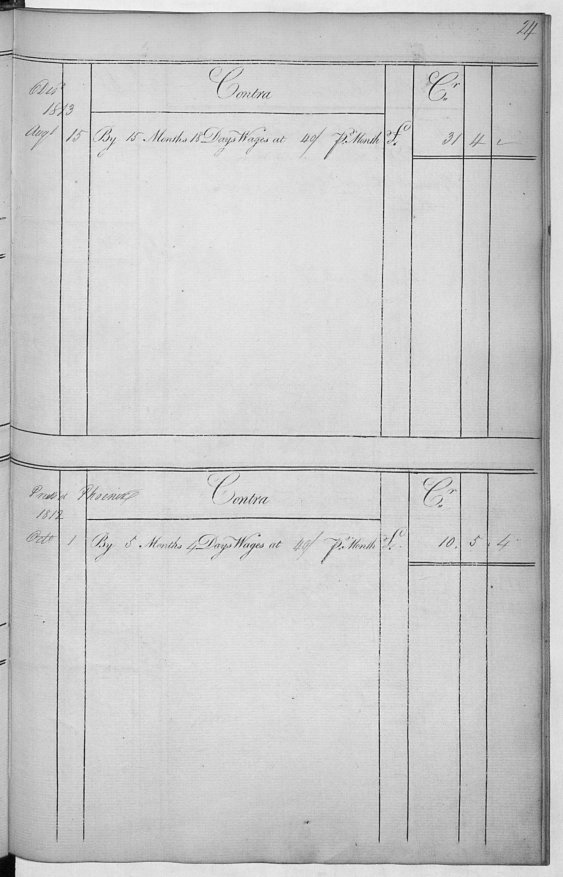 24
Contra Cr.
1813
Augt 15 By 15 Months 18 Days Wages at 40/ pr. Month £. 31 4 "
Contra Cr.
Phoenix
1812
Octo 1 By 5 Months 4 Days Wages at 40/ pr. Month £. 10. 5. 4